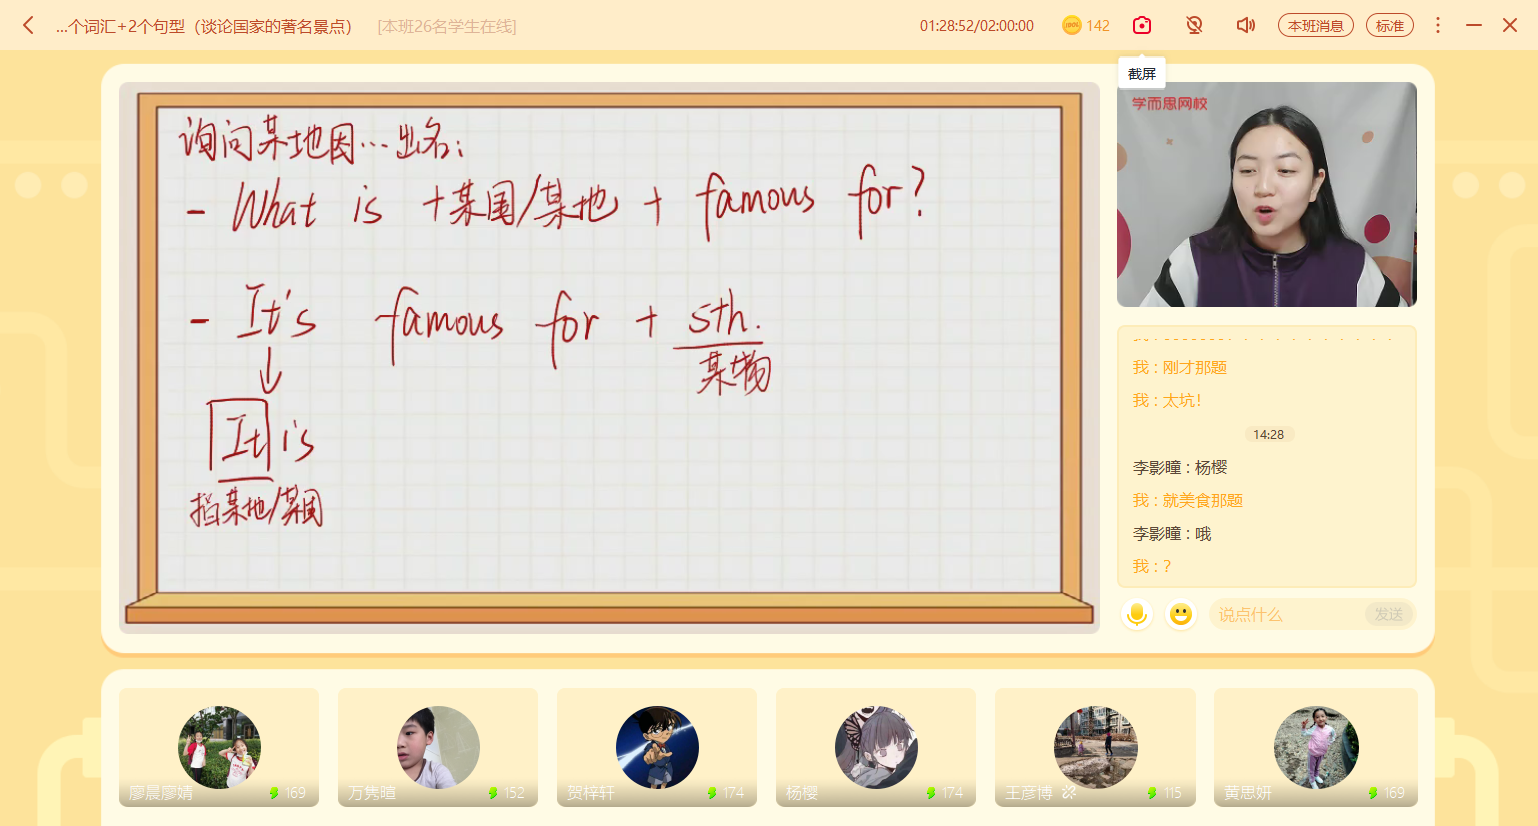 ...个词汇+2个句型（谈论国家的著名景点）
[本班26名学生在线]
01:28:52/02:00:00
142
本班消息
标准
截屏
学而思网校
询问某地因…出名：
- What is +某国/某地 + famous for?
- It's famous for + sth.
某物
It is
指某地/某国
我 : 刚才那题
我 : 太坑!
14:28
李影瞳 : 杨樱
我 : 就美食那题
李影瞳 : 哦
我 : ?
说点什么
发送
廖晨廖婧 169
万隽暄 152
贺梓轩 174
杨樱 174
王彦博 115
黄思妍 169